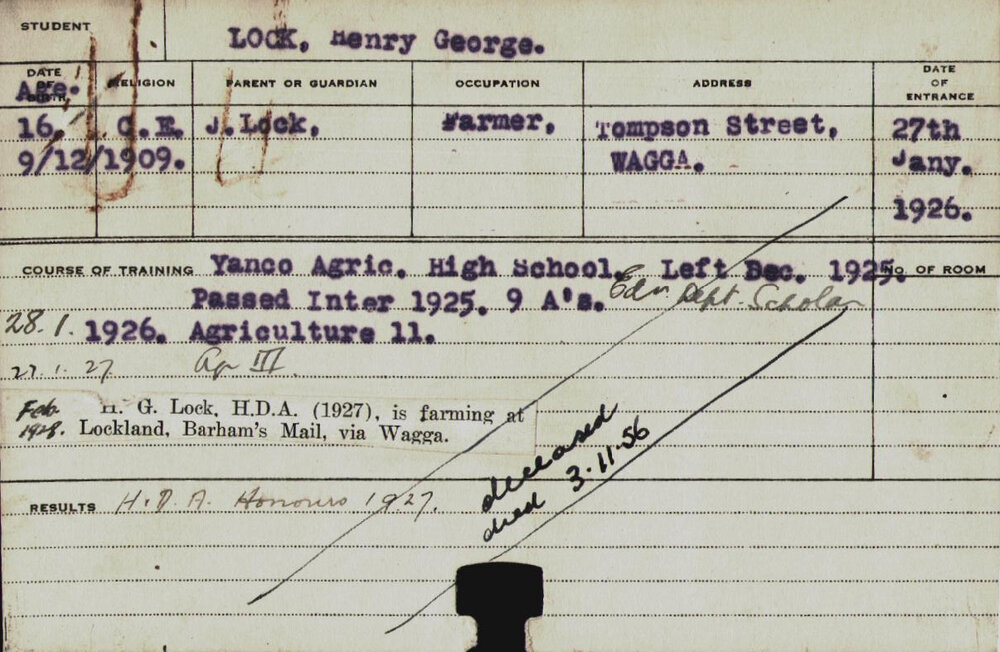 STUDENT
LOCK, Henry George.
DATE OF BIRTH RELIGION PARENT OR GUARDIAN OCCUPATION ADDRESS DATE OF ENTRANCE
Age.
16. C.E. J. Lock, Farmer, Tompson Street, 27th
9/12/1909. WAGGA. Jany.
1926.
COURSE OF TRAINING Yanco Agric. High School. Left Dec. 1925. NO. OF ROOM
Passed Inter 1925. 9 A's. Edn Dept. Scholar
28.1. 1926. Agriculture 11.
27.1.27 Ag III.
Feb. 1928. H. G. Lock, H.D.A. (1927), is farming at
Lockland, Barham's Mail, via Wagga.
deceased
died 3.11.56
RESULTS H.D.A. Honours 1927.